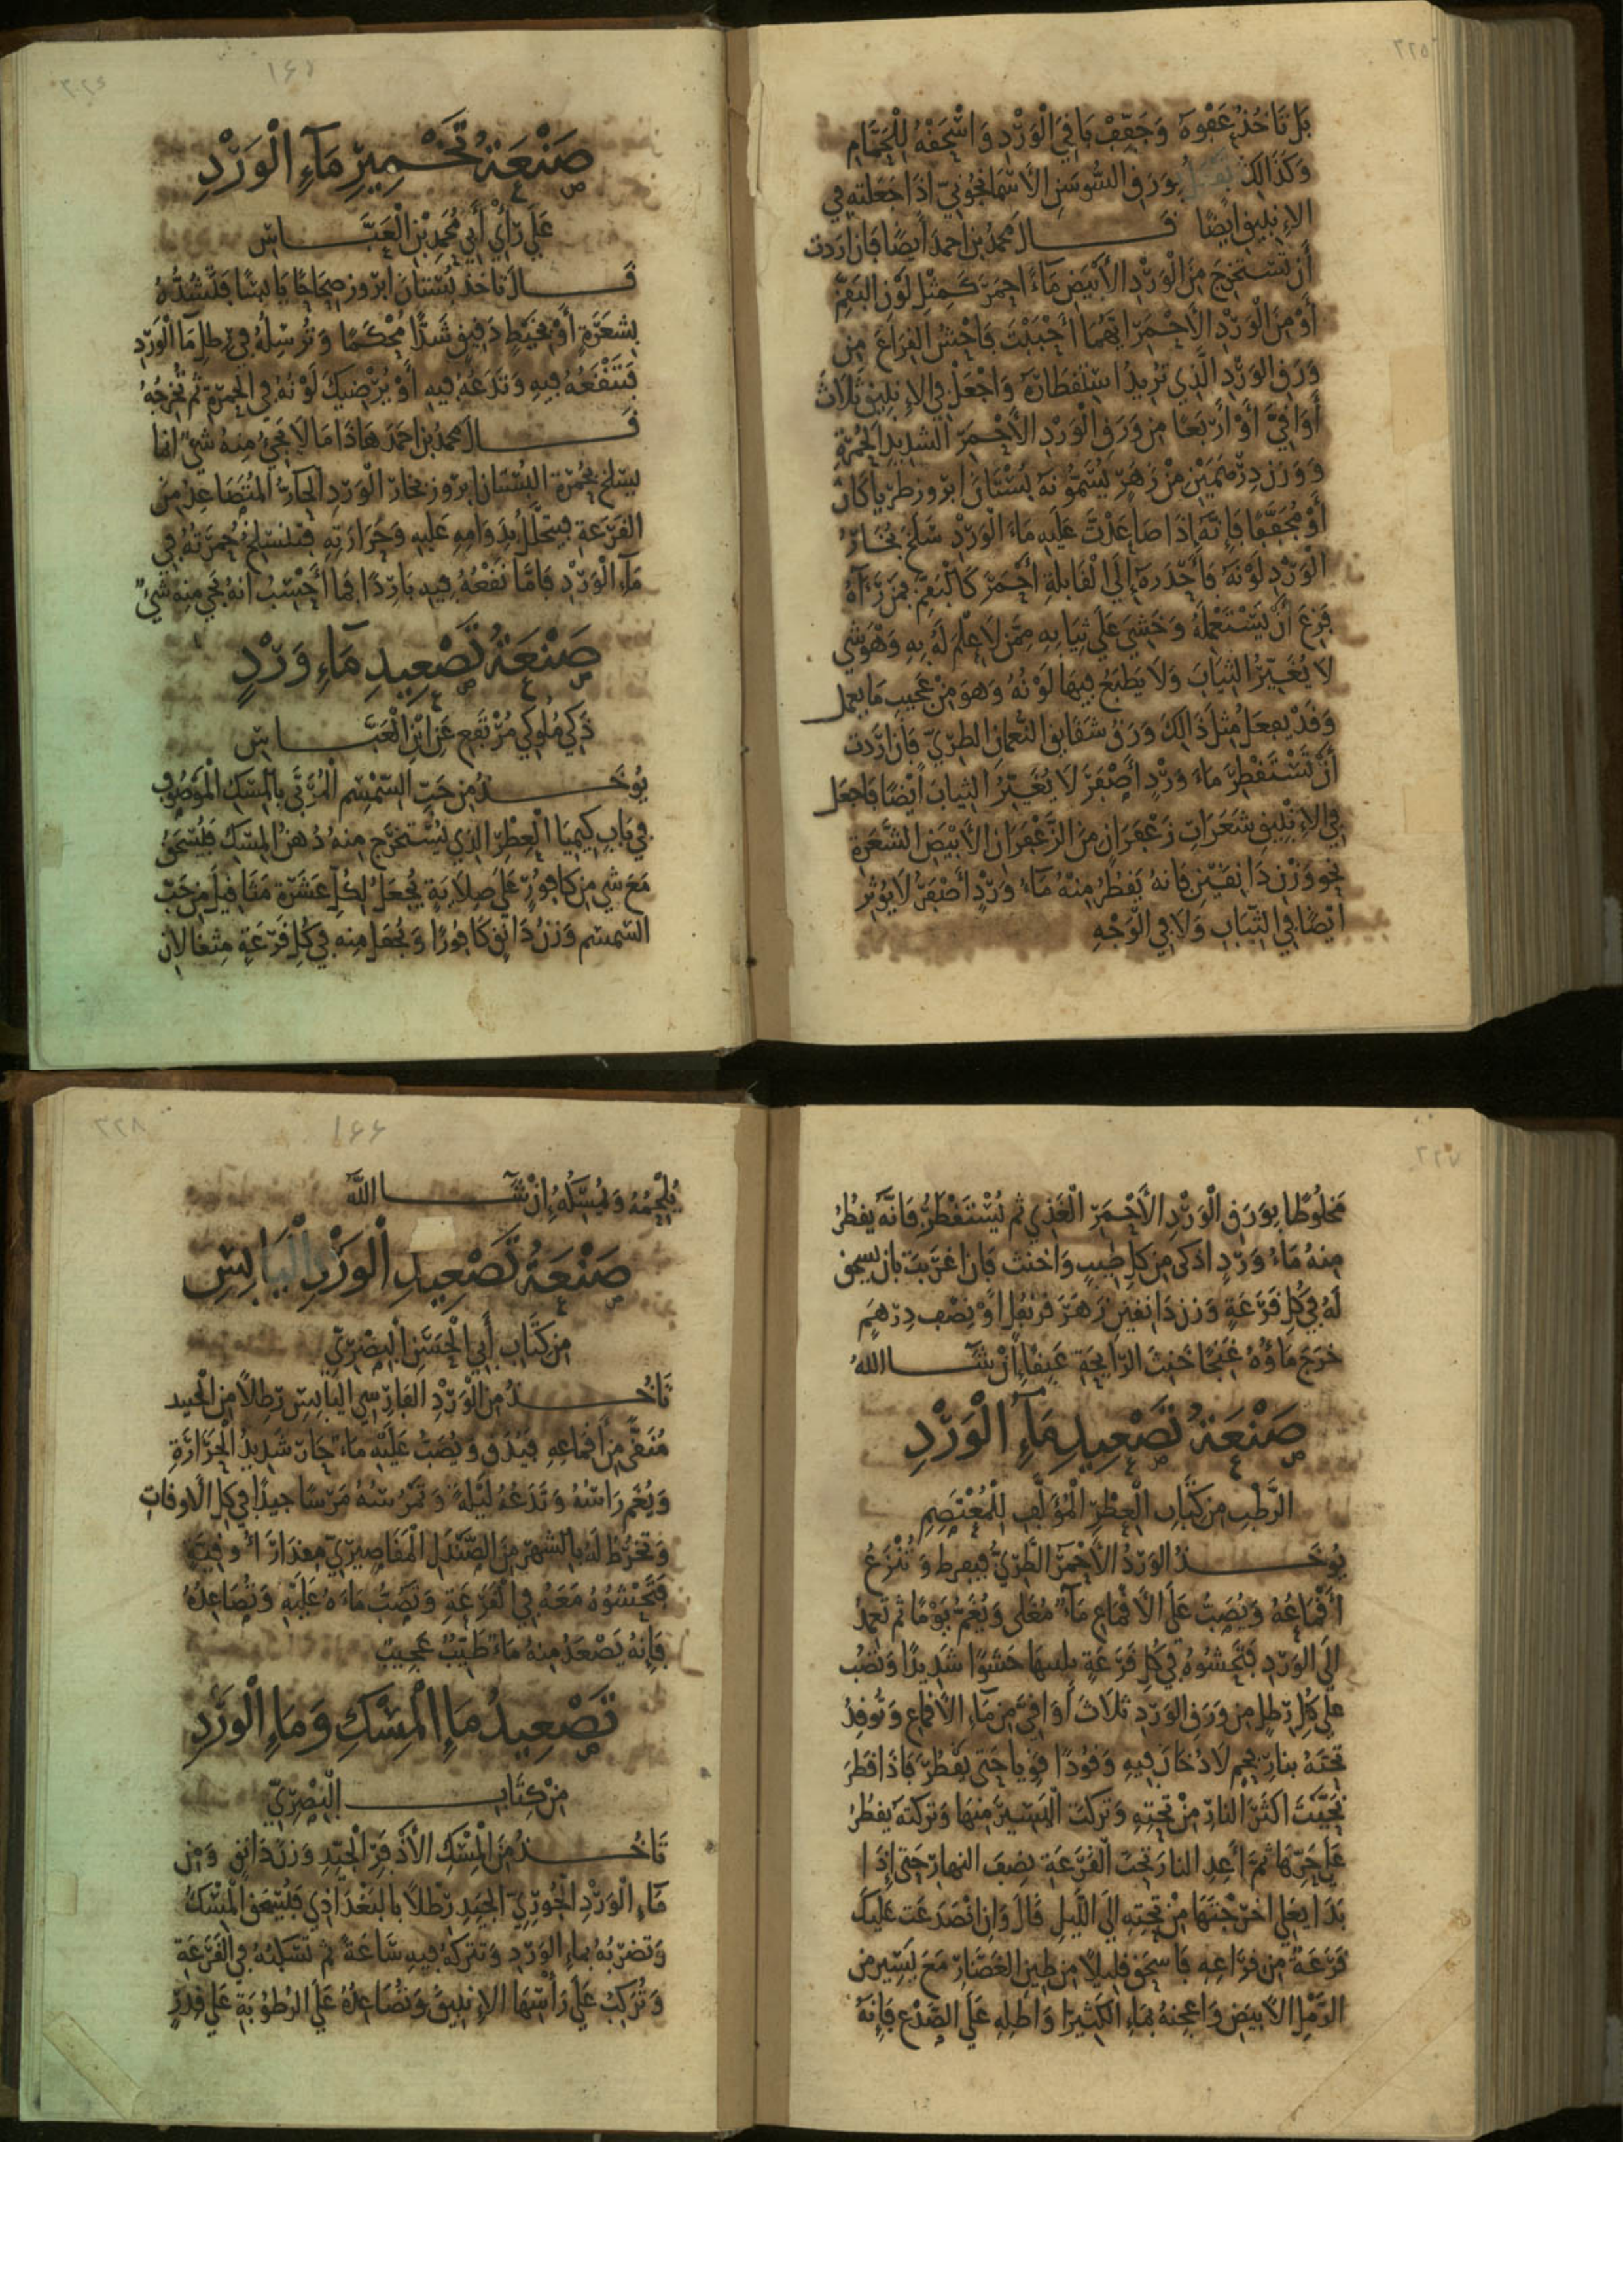 ٣٢٥
بَل تَاخُذ عَفْوهَ وَجَفِّفْ بَاقِي الْوَرْدِ وَاسْحَقْهُ لِلْحَمَّامِ
وَكَذَالِكَ بِوَرَقِ السُّوسَنِ الأَسْمَانجُونِيّ اذَا جَعَلته فِي
الإنبيق ايضًا قَال محمد بن احمدَ أيضًا فان اردت
أن تَسْتَخرِجَ مِنَ الْوَرْدِ الأَبْيَضِ مَاءً احمَرَ كَمِثْلِ لَوْنِ البَقَّمِ
أَوْ مِنَ الْوَرْدِ الأَحْمَرِ ايّهُمَا احْبَبْتَ فَاحْشُ الفَراغَ مِن
وَرَقِ الوَرْدِ الَّذِي تُرِيدُ اسْتِقْطَارَهُ وَاجْعَلْ فِي الإنبيق ثَلَاثَ
أَوَاقِيَّ أَوْ أَرْبَعًا مِن وَرَقِ الْوَرْدِ الأَحْمَرِ الشديدِ الحُمْرَةِ
وَوَزن دِرْهَمَيْنِ مِنْ زَهْرٍ يُسَمُّونَهُ بُسْتَانَ ابروز طَرِيًّا كَانَ
أَوْ مُجَفَّفًا فَإنَّهُ إذَا صَاعَدْتَ عَلَيهِ مَاءَ الْوَرْدِ سَلَخَ بُخَارُ
الْوَرْدِ لَوْنَهُ فَأَحْدَرَهُ إلَي الْقَابِلَةِ أحْمَرَ كَالْبَقَّمِ فمَنْ رَآهُ
فَزِعَ أنْ يَسْتَعْمِلَهُ وَخَشِيَ عَلَي ثِيَابِهِ مِمَّن لَا عِلْمَ لَهُ بِهِ وَهْوَ شي
لَا يُغَيِّرُ الثِّيَابَ وَلَا يَطْبَعُ فِيهَا لَوْنُهُ وَهوَ مِنْ عَجِيبِ مَا يعمل
وَقَدْ يفعَلُ مثلَ ذَالِكَ وَرَقُ شَقَايق النُّعمَان الطرِيّ فَان ارَدت
أَنْ تَسْتَقْطِرَ مَاءَ وَرْدٍ أَصْفَرَ لَا يُغَيِّرُ الثِيابَ أَيْضًا فَاجعَل
فِي الإنبيق شَعَرَاتِ زَعْفَرَانٍ مِنَ الزَّعْفَرَان الأَبْيَض الشَّعَرَة
نحو وَزْن دَانِقَيْنِ فَانهُ يَقطُرُ مِنْهُ مَاءُ وَرْدٍ أصْفَرُ لَا يُوثِر
ايْضًا فِي الثِّيَابِ وَلَا فِي الْوَجْهِ
صَنْعَةُ تَخْمِيرِ مَآءِ الْوَرْدِ
عَلَي رَأْيِ أَبِي مُحَمدِ بْنِ الْعَبَّاسِ
قَال تاخذ بُسْتانَ ابروز صِحَاحًا يَابِسًا فَتَشُدُّهُ
بِشَعَرَةٍ أَوْ بخَيْطٍ دَقِيقٍ شَدًّا مُحْكَمًا وَتُرْسِلُهُ فِي رِطلِ مَا الْوَرْدِ
فَتَنْقَعُهُ فِيهِ وَتَدَعُهُ فِيهِ أَوْ يُرْضِيكَ لَوْنُهُ فِي الحُمرَةِ ثُمَّ تُخْرِجُهُ
قَال محمد بن احمَدَ هَاذَا مَا لَا يَجِيُ مِنهُ شَيْ انما
يسلخ حُمْرَة البُسْتَان ابروز بخار الْوَرْدِ الحَارُّ المُتَصَاعِد مِن
القَرْعَةِ فيتحَلّلُ بِدَوَامِهِ عَلَيهِ وَحَرَارَتِهِ فتنسلخ حُمْرَتُهُ فِي
مَآءِ الْوَرْدِ فَامَّا نَقْعُهُ فِيهِ بَارِدًا فمَا أَحْسبُ انهُ يجي منه شَيْ
صَنْعَةُ تَصْعِيدِ مَآءِ وَرْدٍ
ذَكِيّ مُلُوكِي مُرْتَفِع عَنِ ابْنِ الْعَبَّاسِ
يُوخَذُ مِن حَبّ السّمْسِمِ الْمُرَبَّى بِالْمِسكِ الْمَوْصُوفِ
فِي بَاب كِيمِيَا الْعِطْرِ الذي يُسْتخرَج مِنهُ دُهنُ المِسْكِ فَيُسْحَقُ
مَعَ شي مِن كَافُورٍ عَلَي صِلَايَةٍ يُجْعَلُ لِكُلِّ عَشَرَةِ مَثَاقِيلَ مِن حَبّ
السّمسم وَزنُ دَانِق كَافُورًا وَيُجعَل مِنه فِي كُلِّ قَرْعَةٍ مِثقَالان
٣٢٧
مَخلُوطًا بِوَرَقِ الْوَرْدِ الأَحْمَرِ الْغَذِي ثم يُسْتَقْطَرُ فَانَّهُ يقطُرُ
مِنهُ مَاءُ وَرْدٍ اذكى مِن كل طِيبٍ وَاخنث فَان اغرَبتَ بان يسحق
لَهُ فِي كُلِّ قَرْعَةٍ وَزن دَانقينِ زَهَرَ قرنفُلٍ أَوْ نِصْف دِرْهَمٍ
خرَجَ مَاؤُهُ غَنِجًا خَنِثَ الرَّايِحَةِ عَبِقًا إنْ شَآ اللهُ
صَنْعَةُ تَصْعِيدِ مَآءِ الْوَرْدِ
الرَّطْبِ مِن كِتَابِ الْعِطْرِ الْمُؤَلَّفِ لِلْمُعْتَصِمِ
يُوخَذُ الوَرْدُ الأَحْمَرُ الطَّرِيُّ فيفرط وَتُنْزَعُ
أَقْمَاعُهُ وَيُصَبُّ عَلَي الأَقْمَاعِ مَآءٌ مُغْلى وَيُغَمُّ يَوْمًا ثم تَعمِدُ
الَي الوَرْدِ فَتَحْشُوهُ فِي كُلِّ قَرْعَةٍ حَشْوًا شَدِيدًا وَتَصُب
عَلَي كُلّ رِطلٍ مِن وَرَقِ الوَرْدِ ثَلَاثَ أَوَاقِيَّ مِن مَآءِ الأَقْمَاعِ وَتُوقِدُ
تحتَهُ بنار فحم لَا دُخَانَ فِيهِ وَقُودًا قويا حَتى يَقْطُرَ فَاذَا قَطَرَ
نَحَّيْتَ اكثَرَ النارِ مِنْ تحتِهِ وَتَركتَ الْيَسِيرَ مِنهَا وَتركتَهُ يقطُرُ
عَلَى حَرّهَا ثمَّ أَعِدِ النارَ تحتَ الْقَرْعَةِ نِصفَ النهارِ حَتى إذَا
بَدَا يَغلِي اخرَجْتَهَا مِنْ تحتِهِ الَي اللَّيلِ قَالَ وَان انْصَدَعَت عَلَيكَ
قَرْعَةٌ مِن قرَاعِهِ فَاسحَقْ قليلًا مِن طِينِ الغَضَار مَعَ يَسِير من
الرَّمْلِ الأَبيَضِ وَاعجنهُ بمَاءِ الكَثِيرَا وَاطلِهِ عَلَي الصَّدْعِ فَإنَّهُ
٣٢٨
١٦٦
يُلْحِمُهُ وَيُمْسِكُهُ إنْ شَآ اللَّهُ
صَنْعَةُ تَصْعِيدِ الْوَرْدِ الْيَابِسِ
مِن كِتَابِ أَبِي الْحَسَنِ الْمِصْرِيّ
تَاخُذُ مِنَ الْوَرْدِ الفَارِسِي اليَابِسِ رِطلًا مِن الْجيد
مُنَقًّى مِن أَقْمَاعِهِ فَيُدَقُّ وَيُصَبُّ عَلَيْهِ مَاءٌ حَارّ شَدِيدُ الْحَرَارَةِ
وَيُغَم رَاسُهُ وَتَدَعُهُ لَيْلَةً وَتَمْرُسُهُ مَرْسًا جيدًا فِي كل الأوقَاتِ
وَتخرُطُ لَهُ بِالشهْرِ مِنَ الصَّنْدَلِ الْمَقَاصِيرِيّ مِقدَارَ أُوقِيَّةٍ
فَتَحْشُوهُ مَعَهُ فِي الْقَرْعَةِ وَتَصُبُّ مَاءَهُ عَلَيْهِ وَتُصَاعِدُهُ
فَإنهُ يَصْعَدُ مِنهُ مَاءٌ طَيِّبٌ عَجِيبٌ
تَصْعِيدُ مَآءِ الْمِسْكِ وَمَاءِ الْوَرْدِ
مِنْ كِتَابِ الْمِصْرِيّ
تَاخُذُ مِنَ الْمِسْكِ الأَذْفَرِ الْجَيِّدِ وَزنَ دَانقٍ وَمِن
مَآءِ الْوَرْدِ الْجُورِيّ الجَيِّدِ رِطْلًا بِالبَغْدَاذِي فَيُسْحَقُ الْمِسْكُ
وَتضْرِبُهُ بماءِ الوَرْدِ وَتتركُهُ فِيهِ سَاعَةً ثم تَسْكبُهُ فِي القَرْعَةِ
وَتُرَكِّبُ عَلَي رَأْسِهَا الإنبيقَ وَتُصَاعِدُهُ عَلَي الرُّطُوبَةِ عَلَي قِدْرٍ